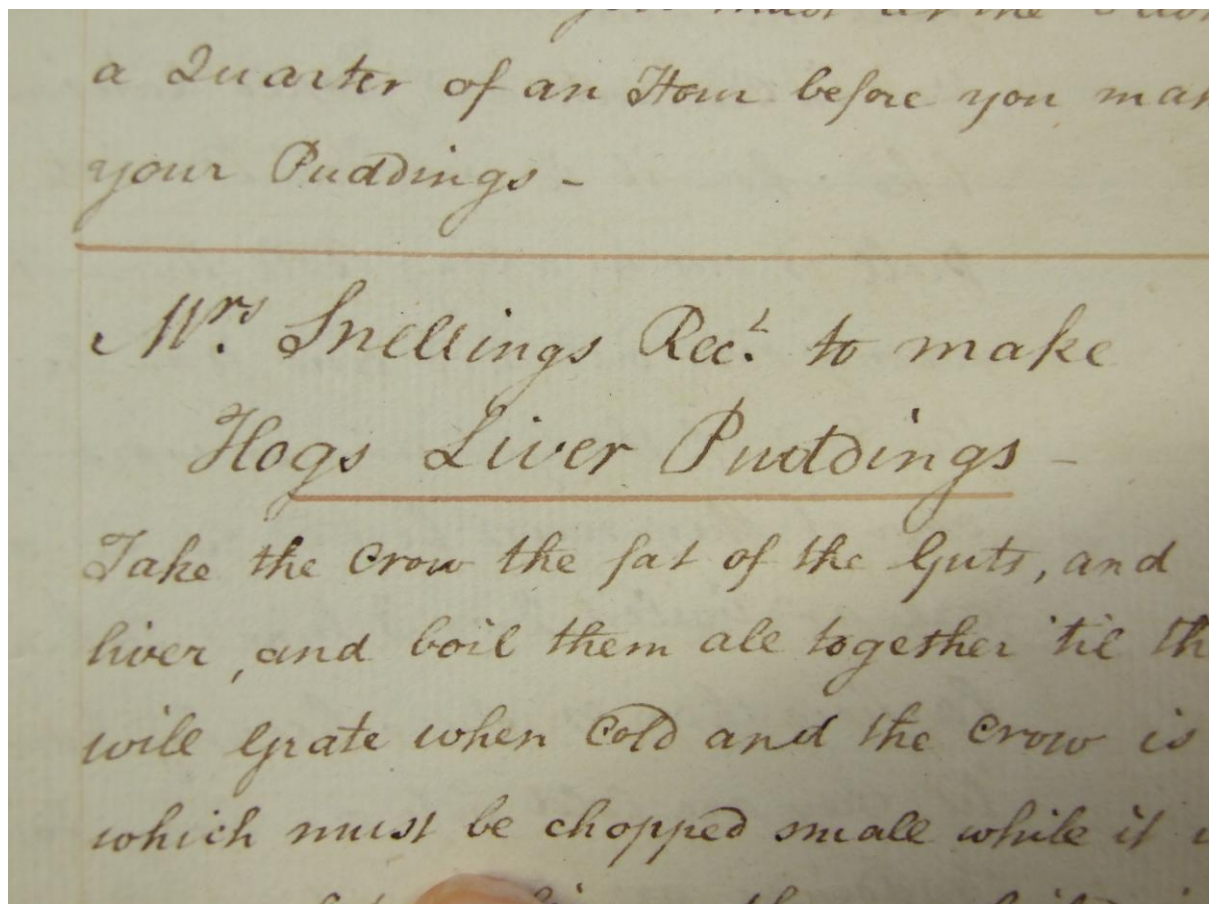 you must let the
a Quarter of an Hour before you
your Puddings -
Mrs. Snellings Rect. to make
Hogs Liver Puddings -
Take the Crow the fat of the Guts, and
liver, and boil them all together 'til th
will Grate when Cold and the Crow is
which must be chopped small while it